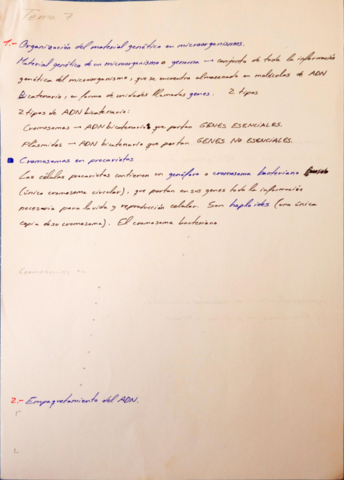 Tema 7
1.- Organización del material genético en microorganismos.
Material genético de un microorganismo o genoma → conjunto de toda la información
genética del microorganismo, que se encuentra almacenada en moléculas de ADN
bicatenario, en forma de unidades llamadas genes. 2 tipos
2 tipos de ADN bicatenario:
Cromosomas → ADN bicatenario que portan GENES ESENCIALES.
Plásmidos → ADN bicatenario que portan GENES NO ESENCIALES.
Cromosomas en procariotas
Las células procariotas contienen un genóforo o cromosoma bacteriano
(único cromosoma circular), que porta en sus genes toda la información
necesaria para la vida y reproducción celular. Son haploides (una única
copia de su cromosoma). El cromosoma bacteriano
2.- Empaquetamiento del ADN.